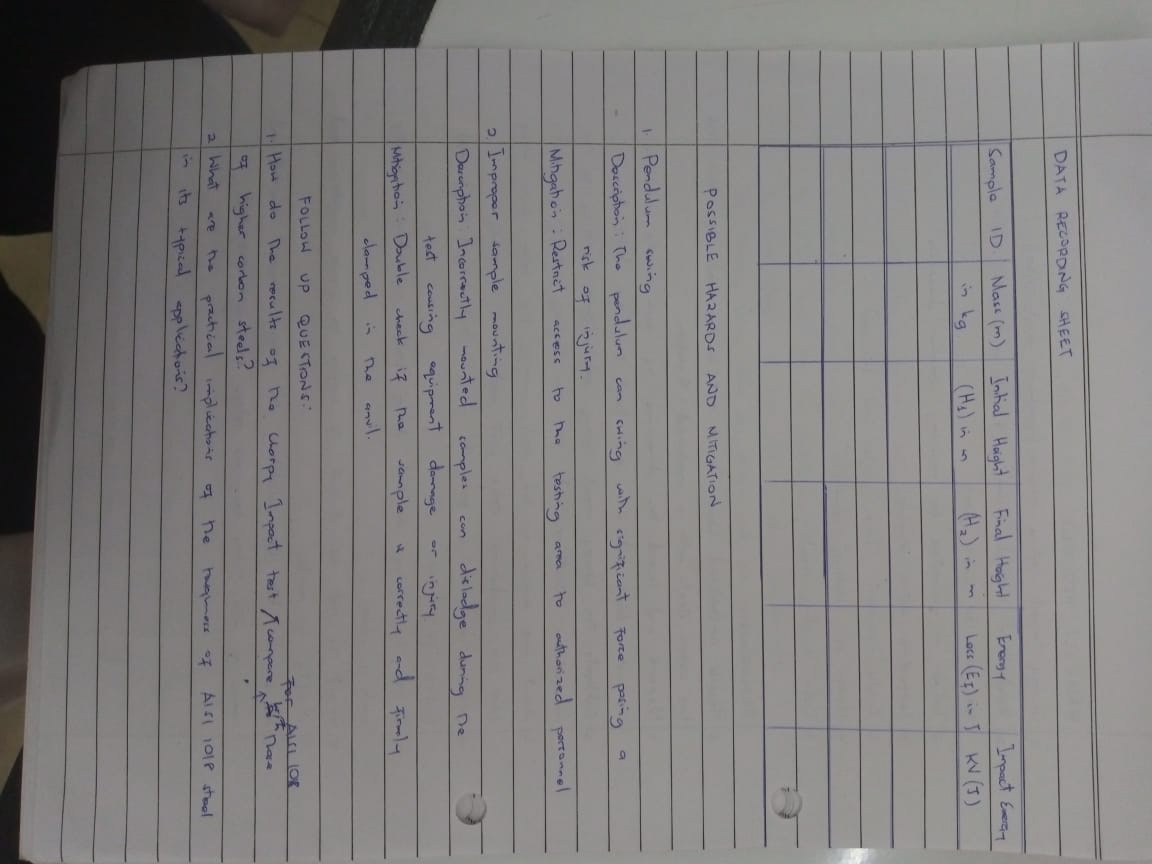 DATA RECORDING SHEET
Sample ID Mass (m) Initial Height Final Height Energy Impact Energy
in kg (H1) in m (H2) in m Loss (Ef) in J KV (J)
POSSIBLE HAZARDS AND MITIGATION
1. Pendulum swing
Description: The pendulum can swing with significant force posing a
risk of injury.
Mitigation: Restrict access to the testing area to authorized personnel
2 Improper sample mounting
Description: Incorrectly mounted samples can dislodge during the
test causing equipment damage or injury
Mitigation: Double check if the sample is correctly and firmly
clamped in the anvil.
FOLLOW UP QUESTIONS:
for AISI 1018
1. How do the results of the charpy Impact test compare with those
of higher carbon steels?
2 What are the practical implications of the toughness of AISI 1018 steel
in its typical applications?